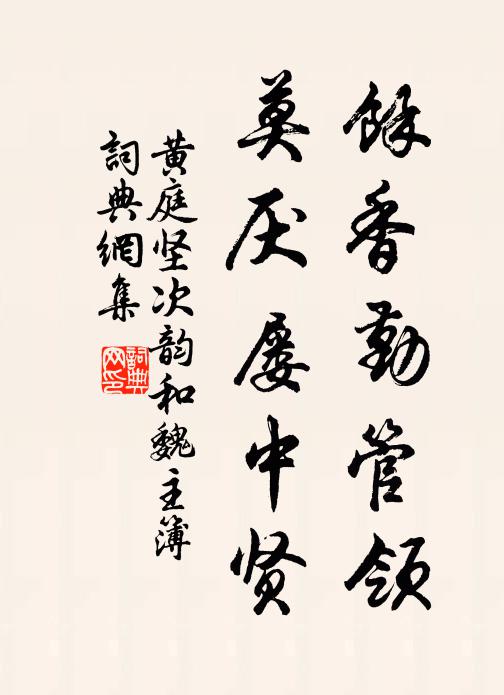 餘香勤管領
莫厌屡中贤
黄庭坚次韵和魏主簿
詞典網集
詞典
网印